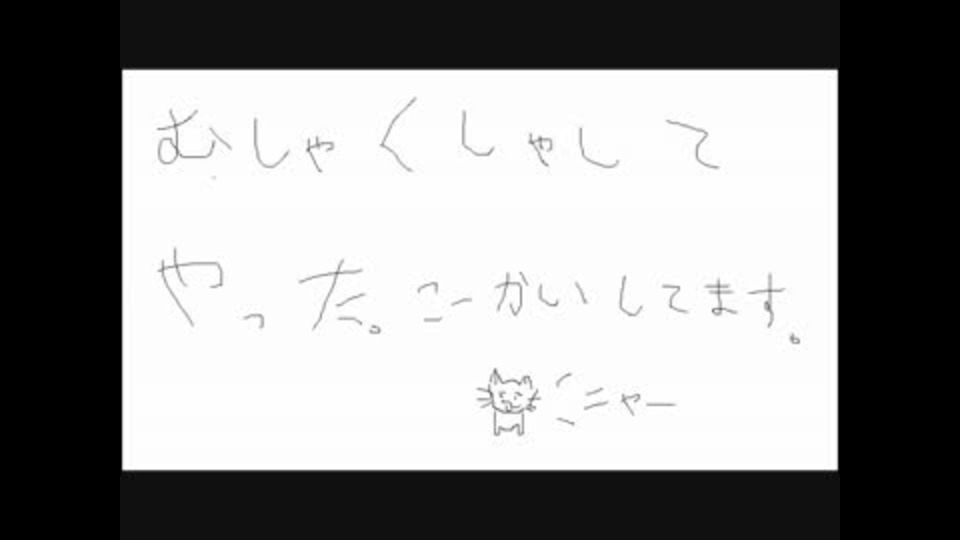 むしゃくしゃして
やった。こーかいしてます。
ニャー